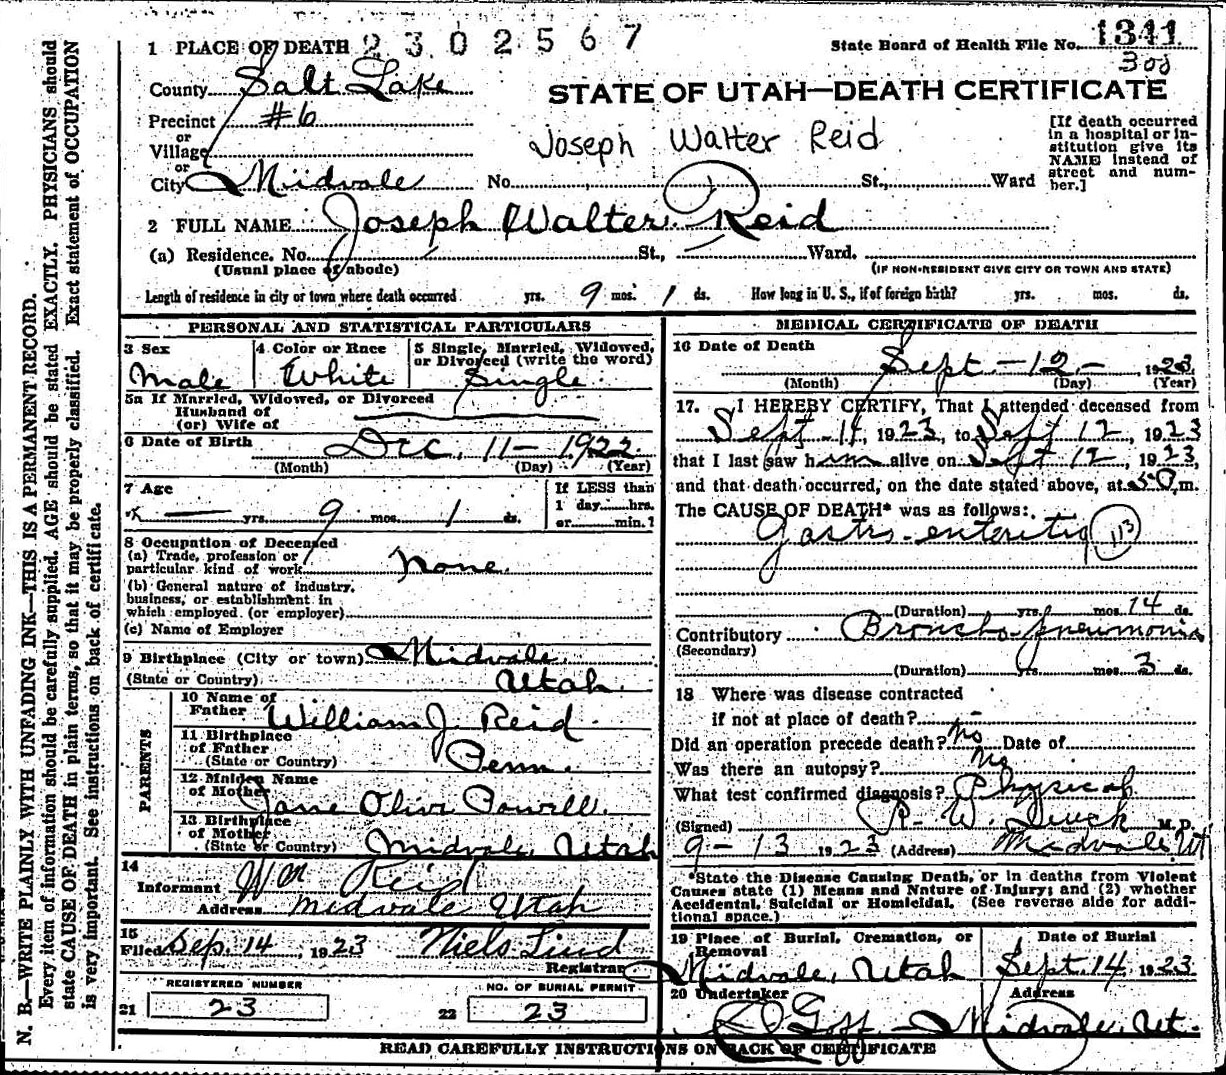 1 PLACE OF DEATH 2302567
State Board of Health File No. 1341
300
County Salt Lake
STATE OF UTAH—DEATH CERTIFICATE
Precinct #6
or
Village
or
City Midvale No. St., Ward
Joseph Walter Reid
[If death occurred
in a hospital or in-
stitution give its
NAME instead of
street and num-
ber.]
2 FULL NAME Joseph Walter Reid
(a) Residence. No. St., Ward.
(Usual place of abode) (IF NON-RESIDENT GIVE CITY OR TOWN AND STATE)
Length of residence in city or town where death occurred yrs. 9 mos. 1 ds. How long in U. S., if of foreign birth? yrs. mos. ds.
PERSONAL AND STATISTICAL PARTICULARS
3 Sex
Male
4 Color or Race
White
5 Single, Married, Widowed,
or Divorced (write the word)
Single
5a If Married, Widowed, or Divorced
Husband of
(or) Wife of
6 Date of Birth Dec. 11 — 1922
(Month) (Day) (Year)
7 Age
— yrs. 9 mos. 1 ds.
If LESS than
1 day......hrs.
or......min.?
8 Occupation of Deceased
(a) Trade, profession or
particular kind of work None.
(b) General nature of industry,
business, or establishment in
which employed (or employer)
(c) Name of Employer
9 Birthplace (City or town) Midvale
(State or Country) Utah.
PARENTS
10 Name of
Father William J. Reid.
11 Birthplace
of Father
(State or Country) Penn.
12 Maiden Name
of Mother Jane Olive Powell.
13 Birthplace
of Mother
(State or Country) Midvale, Utah
14
Informant Wm Reid
Address Midvale Utah
15
Filed Sep. 14, 1923 Niels Lind
Registrar
REGISTERED NUMBER
21 23
NO. OF BURIAL PERMIT
22 23
MEDICAL CERTIFICATE OF DEATH
16 Date of Death
Sept — 12 — 1923
(Month) (Day) (Year)
17. I HEREBY CERTIFY, That I attended deceased from
Sept. 11, 1923, to Sept 12, 1923
that I last saw him alive on Sept 12, 1923,
and that death occurred, on the date stated above, at m.
The CAUSE OF DEATH* was as follows:
Gastro-enteritis 113
(Duration) yrs. mos. 14 ds.
Contributory Broncho-pneumonia
(Secondary)
(Duration) yrs. mos. 3 ds.
18 Where was disease contracted
if not at place of death? -
Did an operation precede death? No Date of
Was there an autopsy? No
What test confirmed diagnosis? Physical
(Signed) R. W. M.D.
9-13 1923 (Address) Midvale Ut
*State the Disease Causing Death, or in deaths from Violent
Causes state (1) Means and Nature of Injury; and (2) whether
Accidental, Suicidal or Homicidal. (See reverse side for addi-
tional space.)
19 Place of Burial, Cremation, or
Removal
Midvale, Utah
Date of Burial
Sept. 14, 1923
20 Undertaker
Goff
Address
Midvale, Ut.
READ CAREFULLY INSTRUCTIONS ON BACK OF CERTIFICATE
N. B.—WRITE PLAINLY WITH UNFADING INK—THIS IS A PERMANENT RECORD.
Every item of information should be carefully supplied. AGE should be stated EXACTLY. PHYSICIANS should
state CAUSE OF DEATH in plain terms, so that it may be properly classified. Exact statement of OCCUPATION
is very important. See instructions on back of certificate.